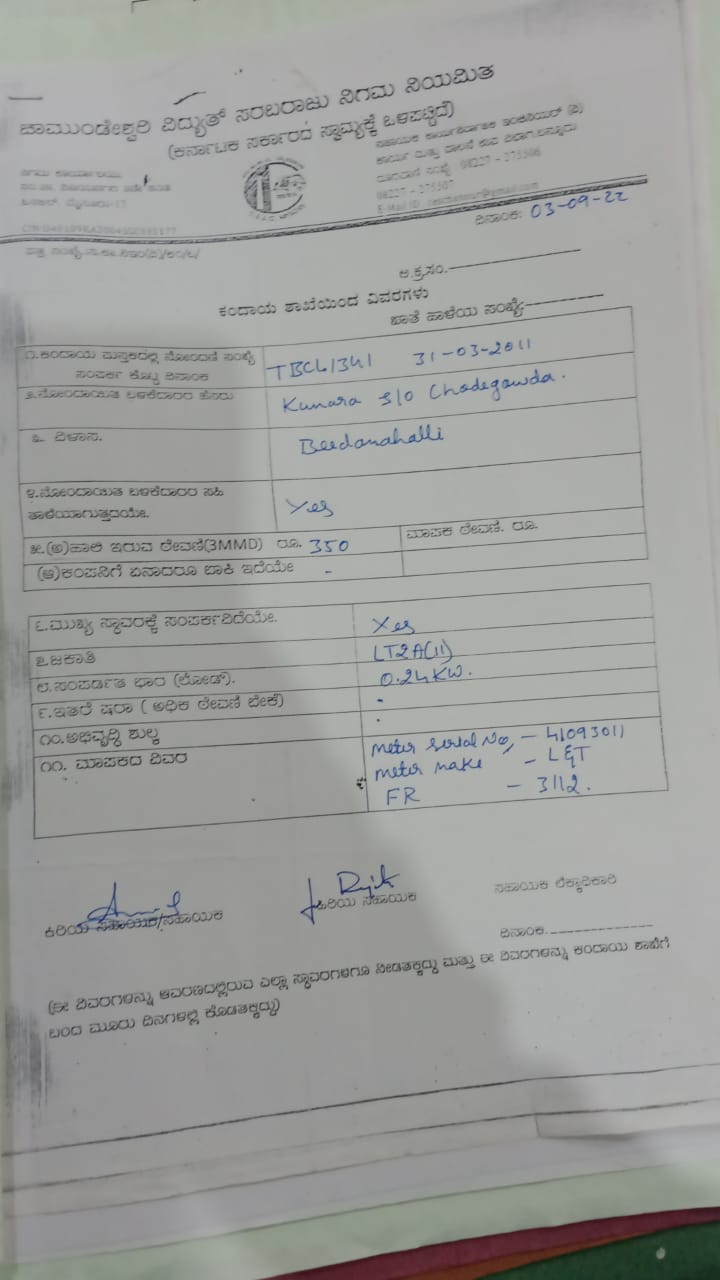 ಚಾಮುಂಡೇಶ್ವರಿ ವಿದ್ಯುತ್ ಸರಬರಾಜು ನಿಗಮ ನಿಯಮಿತ
(ಕರ್ನಾಟಕ ಸರ್ಕಾರದ ಸ್ವಾಮ್ಯಕ್ಕೆ ಒಳಪಟ್ಟಿದೆ)
08227 - 275506
08227 - 275507
ದಿನಾಂಕ: 03-09-22
ಅ.ಕ್ರ.ಸಂ.
ಕಂದಾಯ ಶಾಖೆಯಿಂದ ವಿವರಗಳು
ಖಾತೆ ಹಾಳೆಯ ಸಂಖ್ಯೆ:
೧.ಕಂದಾಯ ಪುಸ್ತಕದಲ್ಲಿ ನೋಂದಣಿ ಸಂಖ್ಯೆ TBCL1341 31-03-2011
ಸಂಪರ್ಕ ಕೊಟ್ಟ ದಿನಾಂಕ
೨.ನೋಂದಾಯಿತ ಬಳಕೆದಾರರ ಹೆಸರು Kumara S/O Chodegowda.
೩. ವಿಳಾಸ. Beedanahalli
೪.ನೋಂದಾಯಿತ ಬಳಕೆದಾರರ ಸಹಿ
ತಾಳೆಯಾಗುತ್ತದೆಯೇ. Yes
೫.(ಅ)ಹಾಲಿ ಇರುವ ಠೇವಣಿ(3MMD) ರೂ. 350 ಮಾಪಕ ಠೇವಣಿ. ರೂ.
(ಆ)ಕಂಪನಿಗೆ ಏನಾದರೂ ಬಾಕಿ ಇದೆಯೇ -
೬.ಮುಖ್ಯ ಸ್ಥಾವರಕ್ಕೆ ಸಂಪರ್ಕವಿದೆಯೇ. Yes
೭.ಜಕಾತಿ LT2A(11)
೮.ಸಂಪರ್ಡಿತ ಭಾರ (ಲೋಡ್). 0.24KW.
೯.ಇತರೆ ಷರಾ ( ಅಧಿಕ ಠೇವಣಿ ಬೇಕೆ) -
೧೦.ಅಭಿವೃದ್ಧಿ ಶುಲ್ಕ -
೧೧. ಮಾಪಕದ ವಿವರ meter serial No, - 41093011
meter make - L&T
FR - 3112.
ಕಿರಿಯ ಸಹಾಯಕ/ಸಹಾಯಕ
ಹಿರಿಯ ಸಹಾಯಕ
ಸಹಾಯಕ ಲೆಕ್ಕಾಧಿಕಾರಿ
ದಿನಾಂಕ.
(ಈ ವಿವರಗಳನ್ನು ಆವರಣದಲ್ಲಿರುವ ಎಲ್ಲಾ ಸ್ಥಾವರಗಳಿಗೂ ನೀಡತಕ್ಕದ್ದು ಮತ್ತು ಈ ವಿವರಗಳನ್ನು ಕಂದಾಯ ಶಾಖೆಗೆ
ಬಂದ ಮೂರು ದಿನಗಳಲ್ಲಿ ಕೊಡತಕ್ಕದ್ದು)